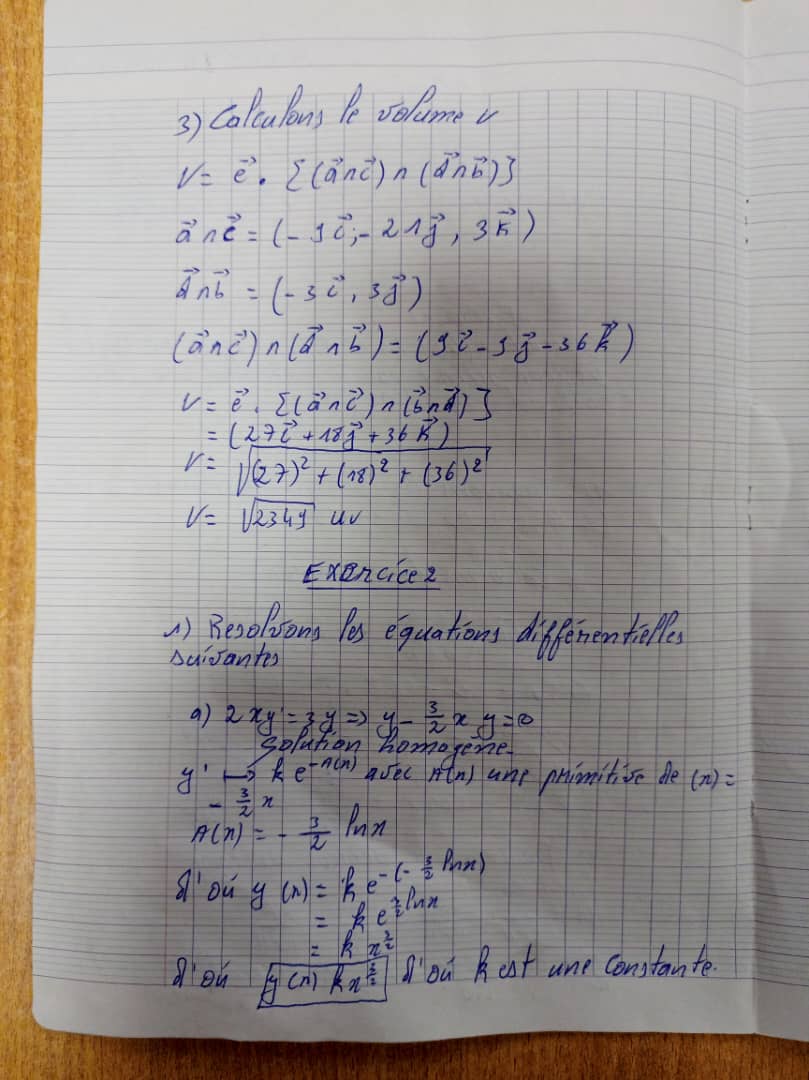 3) Calculons le volume v
V = e⃗ . [(a⃗ ∧ c⃗) ∧ (d⃗ ∧ b⃗)]
a⃗ ∧ c⃗ = (-9i⃗ ; -21j⃗ , 3k⃗)
d⃗ ∧ b⃗ = (-3i⃗ , 3j⃗)
(a⃗ ∧ c⃗) ∧ (d⃗ ∧ b⃗) = (9i⃗ - 9j⃗ - 36k⃗)
V = e⃗ . [(a⃗ ∧ c⃗) ∧ (b⃗ ∧ d⃗)]
= (27i⃗ + 18j⃗ + 36k⃗)
V = √((27)² + (18)² + (36)²)
V = √2349 uv
EXercice 2
1) Resolvons les équations différentielles
suivantes
a) 2xy' = 3y => y - 3/2 x y = 0
solution homogène.
y' ↦ k e^(-A(x)) avec A(x) une primitive de (x) =
- 3/2 x
A(x) = - 3/2 lnx
d'où y(x) = k e^(-(-3/2 lnx))
= k e^(3/2 lnx)
= k x^(3/2)
d'où y(x) kx^(3/2) d'où k est une constante.